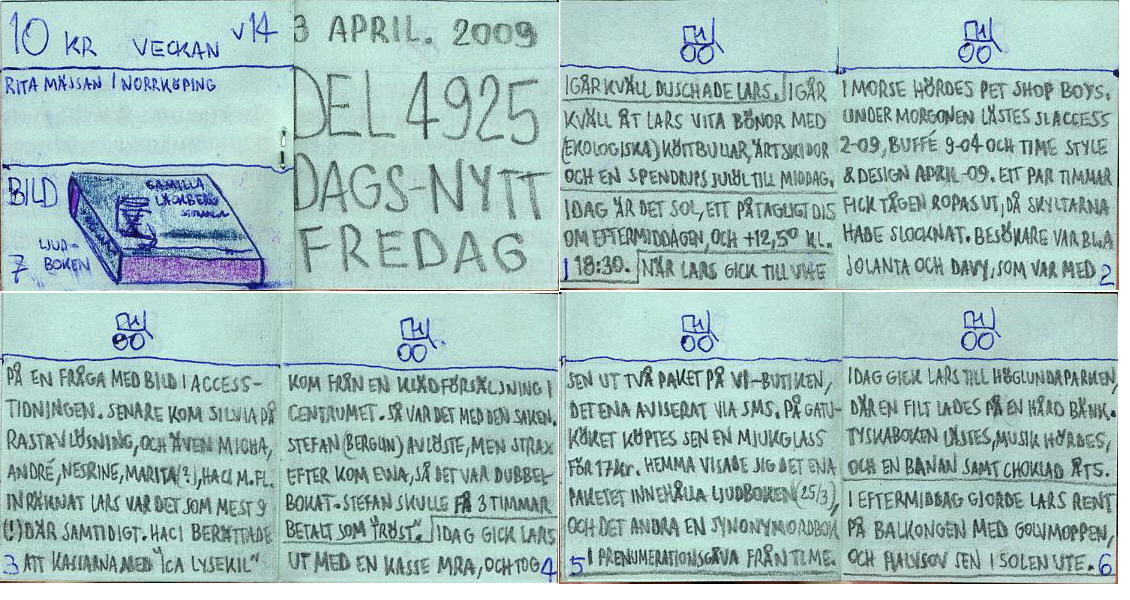 10 KR VECKAN V14
RITA MÄSSAN I NORRKÖPING
BILD
7
CAMILLA
LÄCKBERG
LJUD-
BOKEN
3 APRIL. 2009
DEL 4925
DAGS-NYTT
FREDAG
IGÅR KVÄLL DUSCHADE LARS. IGÅR
KVÄLL ÅT LARS VITA BÖNOR MED
(EKOLOGISKA) KÖTTBULLAR, ÄRTSKIDOR
OCH EN SPENDRUPS JULÖL TILL MIDDAG.
IDAG ÄR DET SOL, ETT PÅTAGLIGT DIS
OM EFTERMIDDAGEN, OCH +12,5° KL.
1 18:30. NÄR LARS GICK TILL
I MORSE HÖRDES PET SHOP BOYS.
UNDER MORGONEN LÄSTES SLACCESS
2-09, BUFFÉ 9-04 OCH TIME STYLE
& DESIGN APRIL-09. ETT PAR TIMMAR
FICK TÅGEN ROPAS UT, DÅ SKYLTARNA
HADE SLOCKNAT. BESÖKARE VAR BL.A
JOLANTA OCH DAVY, SOM VAR MED 2
PÅ EN FRÅGA MED BILD I ACCESS-
TIDNINGEN. SENARE KOM SILVIA PÅ
RASTAVLÖSNING, OCH ÄVEN MICHA,
ANDRÉ, NESRINE, MARITA(?), HACI M.FL.
INRÄKNAT LARS VAR DET SOM MEST 9
(!) DÄR SAMTIDIGT. HACI BERÄTTADE
3 ATT KASSARNA MED "ICA LYSEKIL"
KOM FRÅN EN KLÄDFÖRSÄLJNING I
CENTRUMET. SÅ VAR DET MED DEN SAKEN.
STEFAN (BERGLIN) AVLÖSTE, MEN STRAX
EFTER KOM EWA, SÅ DET VAR DUBBEL-
BOKAT. STEFAN SKULLE FÅ 3 TIMMAR
BETALT SOM "TRÖST". IDAG GICK LARS
UT MED EN KASSE MRA, OCH TOG 4
SEN UT TVÅ PAKET PÅ VI-BUTIKEN,
DET ENA AVISERAT VIA SMS. PÅ GATU-
KÖKET KÖPTES SEN EN MJUKGLASS
FÖR 17 kr. HEMMA VISADE SIG DET ENA
PAKETET INNEHÅLLA LJUDBOKEN (25/3),
OCH DET ANDRA EN SYNONYMORDBOK
5 I PRENUMERATIONSGÅVA FRÅN TIME.
IDAG GICK LARS TILL HÖGLUNDAPARKEN,
DÄR EN FILT LADES PÅ EN HÅRD BÄNK.
TYSKABOKEN LÄSTES, MUSIK HÖRDES,
OCH EN BANAN SAMT CHOKLAD ÄTS.
I EFTERMIDDAG GJORDE LARS RENT
PÅ BALKONGEN MED GOLVMOPPEN,
OCH HALVSOV SEN I SOLEN UTE. 6